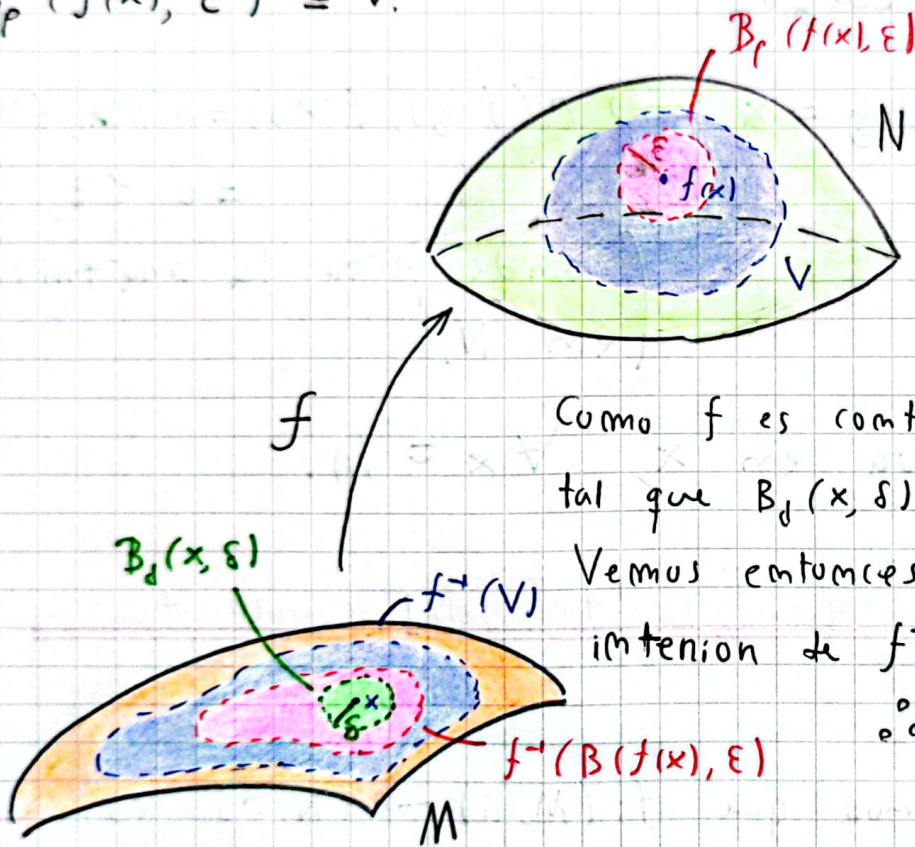 ρ (f(x), ε) ⊆ V.
B_ρ (f(x), ε)
N
ε
f(x)
V
f
Como f es cont
tal que B_d (x, δ)
Vemos entonces
interior de f
B_d (x, δ)
f⁻¹ (V)
x
δ
f⁻¹ (B (f(x), ε)
M